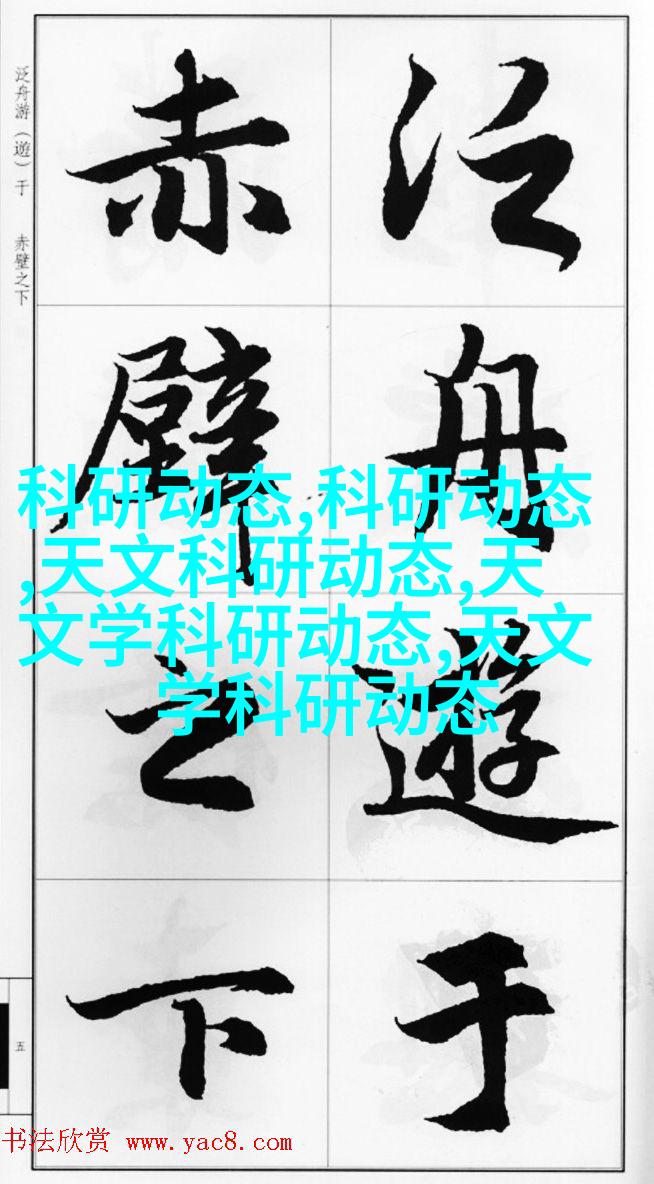 泛舟遊于
赤壁之下
泛舟游（遊）于　赤壁之下
科研动态,科研动态
,天文科研动态,天
文学科研动态,天文
学科研动态
五
书法欣赏 www.yac8.com